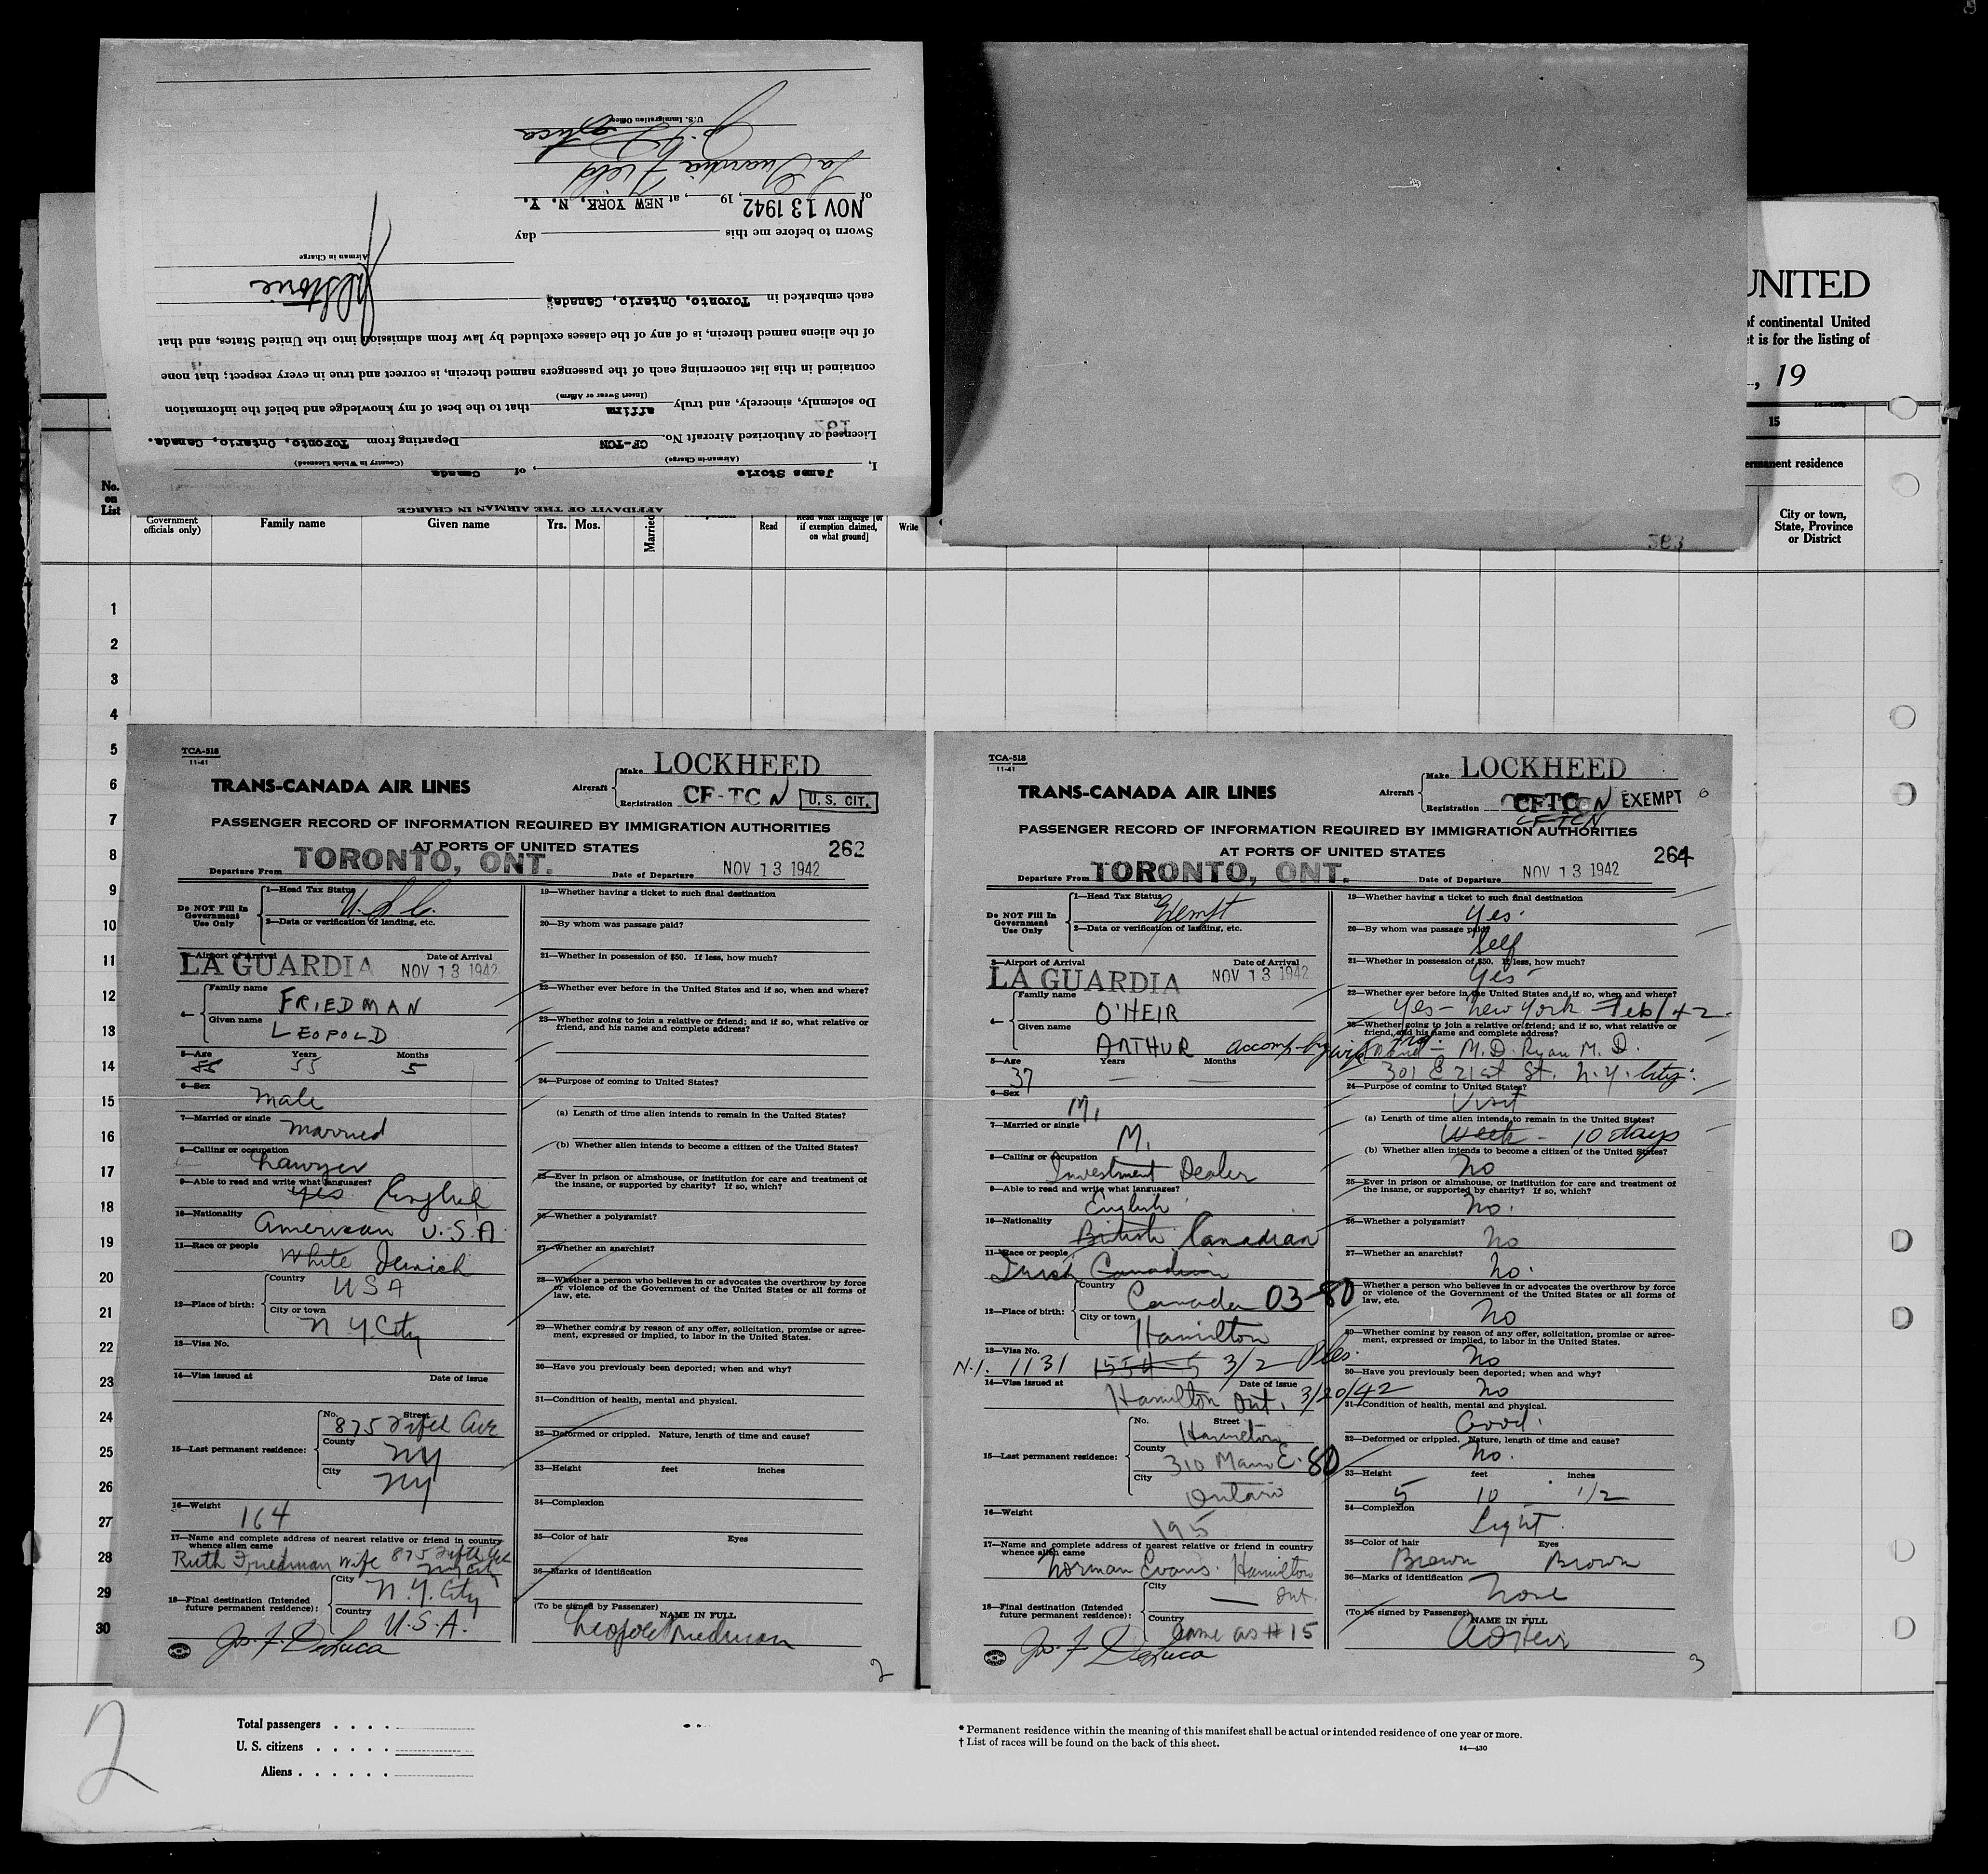 AFFIDAVIT OF THE AIRMAN IN CHARGE
I, James Storie, of Canada
(Airman-in Charge) (Country in Which Licensed)
Licensed or Authorized Aircraft No. CF-TCN Departing from Toronto, Ontario, Canada.
Do solemnly, sincerely, and truly affirm that to the best of my knowledge and belief the information
(Insert Swear or Affirm)
contained in this list concerning each of the passengers named therein, is correct and true in every respect; that none
of the aliens named therein, is of any of the classes excluded by law from admission into the United States, and that
each embarked in Toronto, Ontario, Canada;
Airman in Charge
Sworn to before me this day
of NOV 13 1942, 19, at NEW YORK, N. Y.
La Guardia Field
U.S. Immigration Officer
UNITED
of continental United
et is for the listing of
, 19
15
ermanent residence
City or town,
State, Province
or District
383
No.
on
List
Government
officials only)
Family name
Given name
Yrs. Mos.
Married
Read
Read what language [or
if exemption claimed,
on what ground]
Write
1
2
3
4
5
6
7
8
9
10
11
12
13
14
15
16
17
18
19
20
21
22
23
24
25
26
27
28
29
30
TCA-518
11-41
TRANS-CANADA AIR LINES
Aircraft
Make LOCKHEED
Registration CF-TC N U. S. CIT.
PASSENGER RECORD OF INFORMATION REQUIRED BY IMMIGRATION AUTHORITIES
AT PORTS OF UNITED STATES
262
Departure From TORONTO, ONT. Date of Departure NOV 13 1942
Do NOT Fill In
Government
Use Only
1—Head Tax Status U.S.C.
2—Data or verification of landing, etc.
3—Airport of Arrival Date of Arrival
LA GUARDIA NOV 13 1942
4— Family name FRIEDMAN
Given name LEOPOLD
5—Age Years Months
55 5
6—Sex
Male
7—Married or single
Married
8—Calling or occupation
Lawyer
9—Able to read and write what languages?
Yes English
10—Nationality
American U.S.A.
11—Race or people
White Jewish
12—Place of birth:
Country
USA
City or town
N Y City
13—Visa No.
14—Visa issued at Date of issue
15—Last permanent residence:
No. Street
875 Fifth Ave
County
NY
City
NY
16—Weight
164
17—Name and complete address of nearest relative or friend in country
whence alien came
Ruth Friedman Wife 875 Fifth Ave
NY City
18—Final destination (Intended
future permanent residence):
City
N.Y. City
Country
U.S.A.
Jos. F. DeLuca
19—Whether having a ticket to such final destination
20—By whom was passage paid?
21—Whether in possession of $50. If less, how much?
22—Whether ever before in the United States and if so, when and where?
23—Whether going to join a relative or friend; and if so, what relative or
friend, and his name and complete address?
24—Purpose of coming to United States?
(a) Length of time alien intends to remain in the United States?
(b) Whether alien intends to become a citizen of the United States?
25—Ever in prison or almshouse, or institution for care and treatment of
the insane, or supported by charity? If so, which?
26—Whether a polygamist?
27—Whether an anarchist?
28—Whether a person who believes in or advocates the overthrow by force
or violence of the Government of the United States or all forms of
law, etc.
29—Whether coming by reason of any offer, solicitation, promise or agree-
ment, expressed or implied, to labor in the United States.
30—Have you previously been deported; when and why?
31—Condition of health, mental and physical.
32—Deformed or crippled. Nature, length of time and cause?
33—Height feet inches
34—Complexion
35—Color of hair Eyes
36—Marks of identification
(To be signed by Passenger) NAME IN FULL
Leopold Friedman
2
TCA-518
11-41
TRANS-CANADA AIR LINES
Aircraft
Make LOCKHEED
Registration CFTC N EXEMPT
CFTCN
PASSENGER RECORD OF INFORMATION REQUIRED BY IMMIGRATION AUTHORITIES
AT PORTS OF UNITED STATES
264
Departure From TORONTO, ONT. Date of Departure NOV 13 1942
Do NOT Fill In
Government
Use Only
1—Head Tax Status Exempt
2—Data or verification of landing, etc.
3—Airport of Arrival Date of Arrival
LA GUARDIA NOV 13 1942
4— Family name O'HEIR
Given name ARTHUR accomp. by wife
5—Age Years Months
37
6—Sex
M.
7—Married or single
M.
8—Calling or occupation
Investment Dealer
9—Able to read and write what languages?
English
10—Nationality
British Canadian
11—Race or people
Irish Canadian
12—Place of birth:
Country
Canada 03-80
City or town
Hamilton
13—Visa No.
N.I. 1131 1554-5 3/2
14—Visa issued at Date of issue
Hamilton Ont. 3/20/42
15—Last permanent residence:
No. Street
Hamilton
County
310 Main E. 80
City
Ontario
16—Weight
195
17—Name and complete address of nearest relative or friend in country
whence alien came
Norman Evans. Hamilton
Ont.
18—Final destination (Intended
future permanent residence):
City
—
Country
Same as #15
Jos. F. DeLuca
19—Whether having a ticket to such final destination
Yes.
20—By whom was passage paid?
Self
21—Whether in possession of $50. If less, how much?
Yes
22—Whether ever before in the United States and if so, when and where?
Yes - New York - Feb/42
23—Whether going to join a relative or friend; and if so, what relative or
friend, and his name and complete address?
Friend - M.D. Ryan M.D.
301 E 21st St. N.Y. City.
24—Purpose of coming to United States?
Visit
(a) Length of time alien intends to remain in the United States?
Week - 10 days
(b) Whether alien intends to become a citizen of the United States?
No
25—Ever in prison or almshouse, or institution for care and treatment of
the insane, or supported by charity? If so, which?
No.
26—Whether a polygamist?
No
27—Whether an anarchist?
No.
28—Whether a person who believes in or advocates the overthrow by force
or violence of the Government of the United States or all forms of
law, etc.
No
29—Whether coming by reason of any offer, solicitation, promise or agree-
ment, expressed or implied, to labor in the United States.
No
30—Have you previously been deported; when and why?
No
31—Condition of health, mental and physical.
Good.
32—Deformed or crippled. Nature, length of time and cause?
No.
33—Height feet inches
5 10 1/2
34—Complexion
Light.
35—Color of hair Eyes
Brown Brown
36—Marks of identification
None
(To be signed by Passenger) NAME IN FULL
A O'Heir
3
2
Total passengers . . . .
U. S. citizens . . . . .
Aliens . . . . . .
* Permanent residence within the meaning of this manifest shall be actual or intended residence of one year or more.
† List of races will be found on the back of this sheet.
14—430